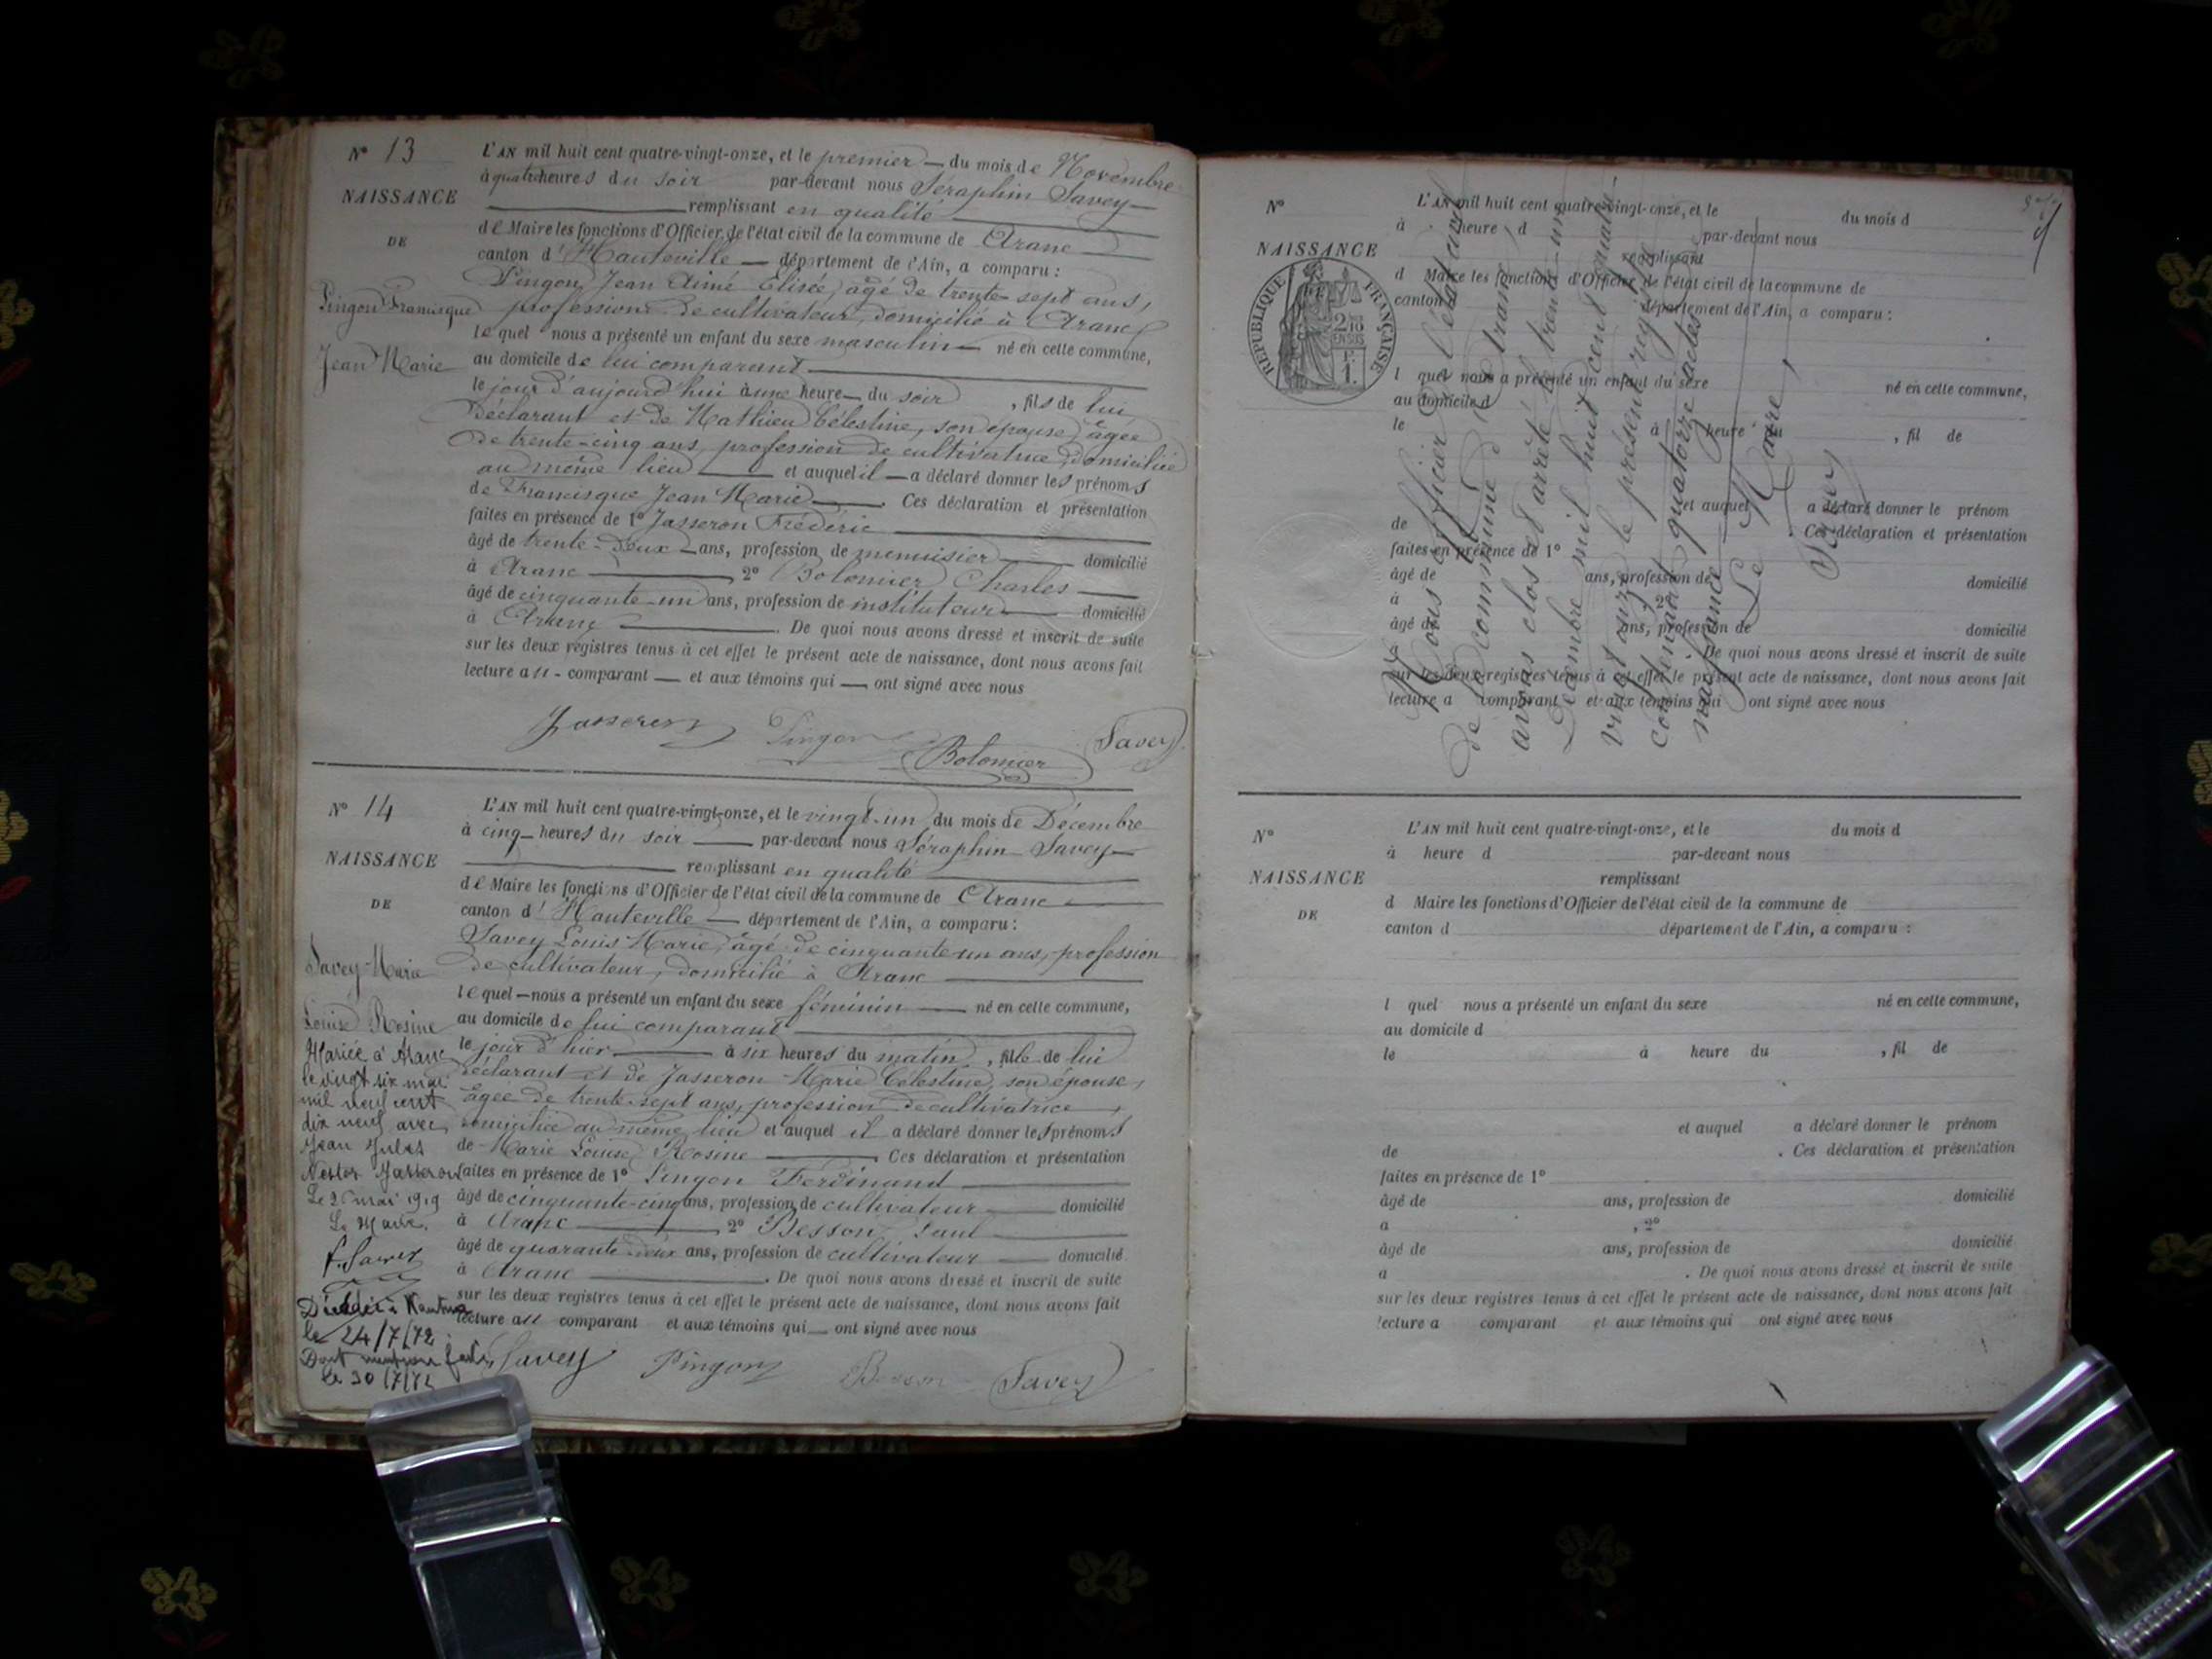 N° 13
NAISSANCE
DE
Pingon Francisque
Jean Marie
L'AN mil huit cent quatre-vingt-onze, et le premier — du mois de Novembre
à quatre heures du soir par-devant nous Séraphin Savey —
remplissant en qualité
de Maire les fonctions d'Officier de l'état civil de la commune de Aranc
canton d'Hauteville — département de l'Ain, a comparu :
Pingon Jean Aimé Elisée, âgé de trente-sept ans,
profession de cultivateur, domicilié à Aranc
lequel nous a présenté un enfant du sexe masculin — né en cette commune,
au domicile de lui comparant
le jour d'aujourd'hui à une heure — du soir, fils de lui
déclarant et de Mathieu Célestine, son épouse, âgée
de trente-cinq ans, profession de cultivatrice, domiciliée
au même lieu — et auquel il — a déclaré donner les prénoms
de Francisque Jean Marie — . Ces déclaration et présentation
faites en présence de 1° Jasseron Frédéric
âgé de trente-deux — ans, profession de menuisier — domicilié
à Aranc — 2° Bolomier Charles —
âgé de cinquante-un ans, profession de instituteur — domicilié
à Aranc — . De quoi nous avons dressé et inscrit de suite
sur les deux registres tenus à cet effet le présent acte de naissance, dont nous avons fait
lecture au - comparant — et aux témoins qui — ont signé avec nous
Jasseron Pingon Bolomier Savey
N° 14
NAISSANCE
DE
Savey Marie
Louise Rosine
Mariée à Aranc
le vingt six mai
mil neuf cent
dix neuf avec
Jean Jules
Nestor Jasseron
Le 26 mai 1919
Le Maire,
f. Savey
Décédée à Nantua
le 24/7/72
Dont mention faite
le 30/7/72
L'AN mil huit cent quatre-vingt-onze, et le vingt-un du mois de Décembre
à cinq — heures du soir — par-devant nous Séraphin Savey —
remplissant en qualité
de Maire les fonctions d'Officier de l'état civil de la commune de Aranc
canton d'Hauteville — département de l'Ain, a comparu :
Savey Louis Marie, âgé de cinquante-un ans, profession
de cultivateur, domicilié à Aranc
lequel — nous a présenté un enfant du sexe féminin — né en cette commune,
au domicile de lui comparant
le jour d'hier — à six heures du matin, fille de lui
déclarant et de Jasseron Marie Célestine, son épouse,
âgée de trente-sept ans, profession de cultivatrice,
domiciliée au même lieu et auquel il a déclaré donner les prénoms
de Marie Louise Rosine — . Ces déclaration et présentation
faites en présence de 1° Pingon Ferdinand
âgé de cinquante-cinq ans, profession de cultivateur — domicilié
à Aranc — 2° Besson Paul
âgé de quarante-deux ans, profession de cultivateur — domicilié
à Aranc — . De quoi nous avons dressé et inscrit de suite
sur les deux registres tenus à cet effet le présent acte de naissance, dont nous avons fait
lecture au comparant et aux témoins qui — ont signé avec nous
Savey Pingon Besson Savey
N°
NAISSANCE
RÉPUBLIQUE FRANÇAISE
L'AN mil huit cent quatre-vingt-onze, et le du mois d
à heure d par-devant nous
remplissant
d Maire les fonctions d'Officier de l'état civil de la commune de
canton département de l'Ain, a comparu :
l quel nous a présenté un enfant du sexe né en cette commune,
au domicile d
le à heure du , fil de
et auquel a déclaré donner le prénom
de Ces déclaration et présentation
faites en présence de 1°
âgé de ans, profession de domicilié
à 2°
âgé de ans, profession de domicilié
à . De quoi nous avons dressé et inscrit de suite
sur les deux registres tenus à cet effet le présent acte de naissance, dont nous avons fait
lecture a comparant et aux témoins qui ont signé avec nous
Nous Officier de l'état civil
de la commune d'Aranc,
avons clos et arrêté le trente-un
Décembre mil huit cent quatre
vingt onze le présent registre
contenant quatorze actes de
naissance
Le Maire,
Savey
N°
NAISSANCE
DE
L'AN mil huit cent quatre-vingt-onze, et le du mois d
à heure d par-devant nous
remplissant
d Maire les fonctions d'Officier de l'état civil de la commune de
canton d département de l'Ain, a comparu :
l quel nous a présenté un enfant du sexe né en cette commune,
au domicile d
le à heure du , fil de
et auquel a déclaré donner le prénom
de . Ces déclaration et présentation
faites en présence de 1°
âgé de ans, profession de domicilié
a , 2°
âgé de ans, profession de domicilié
a . De quoi nous avons dressé et inscrit de suite
sur les deux registres tenus à cet effet le présent acte de naissance, dont nous avons fait
lecture a comparant et aux témoins qui ont signé avec nous